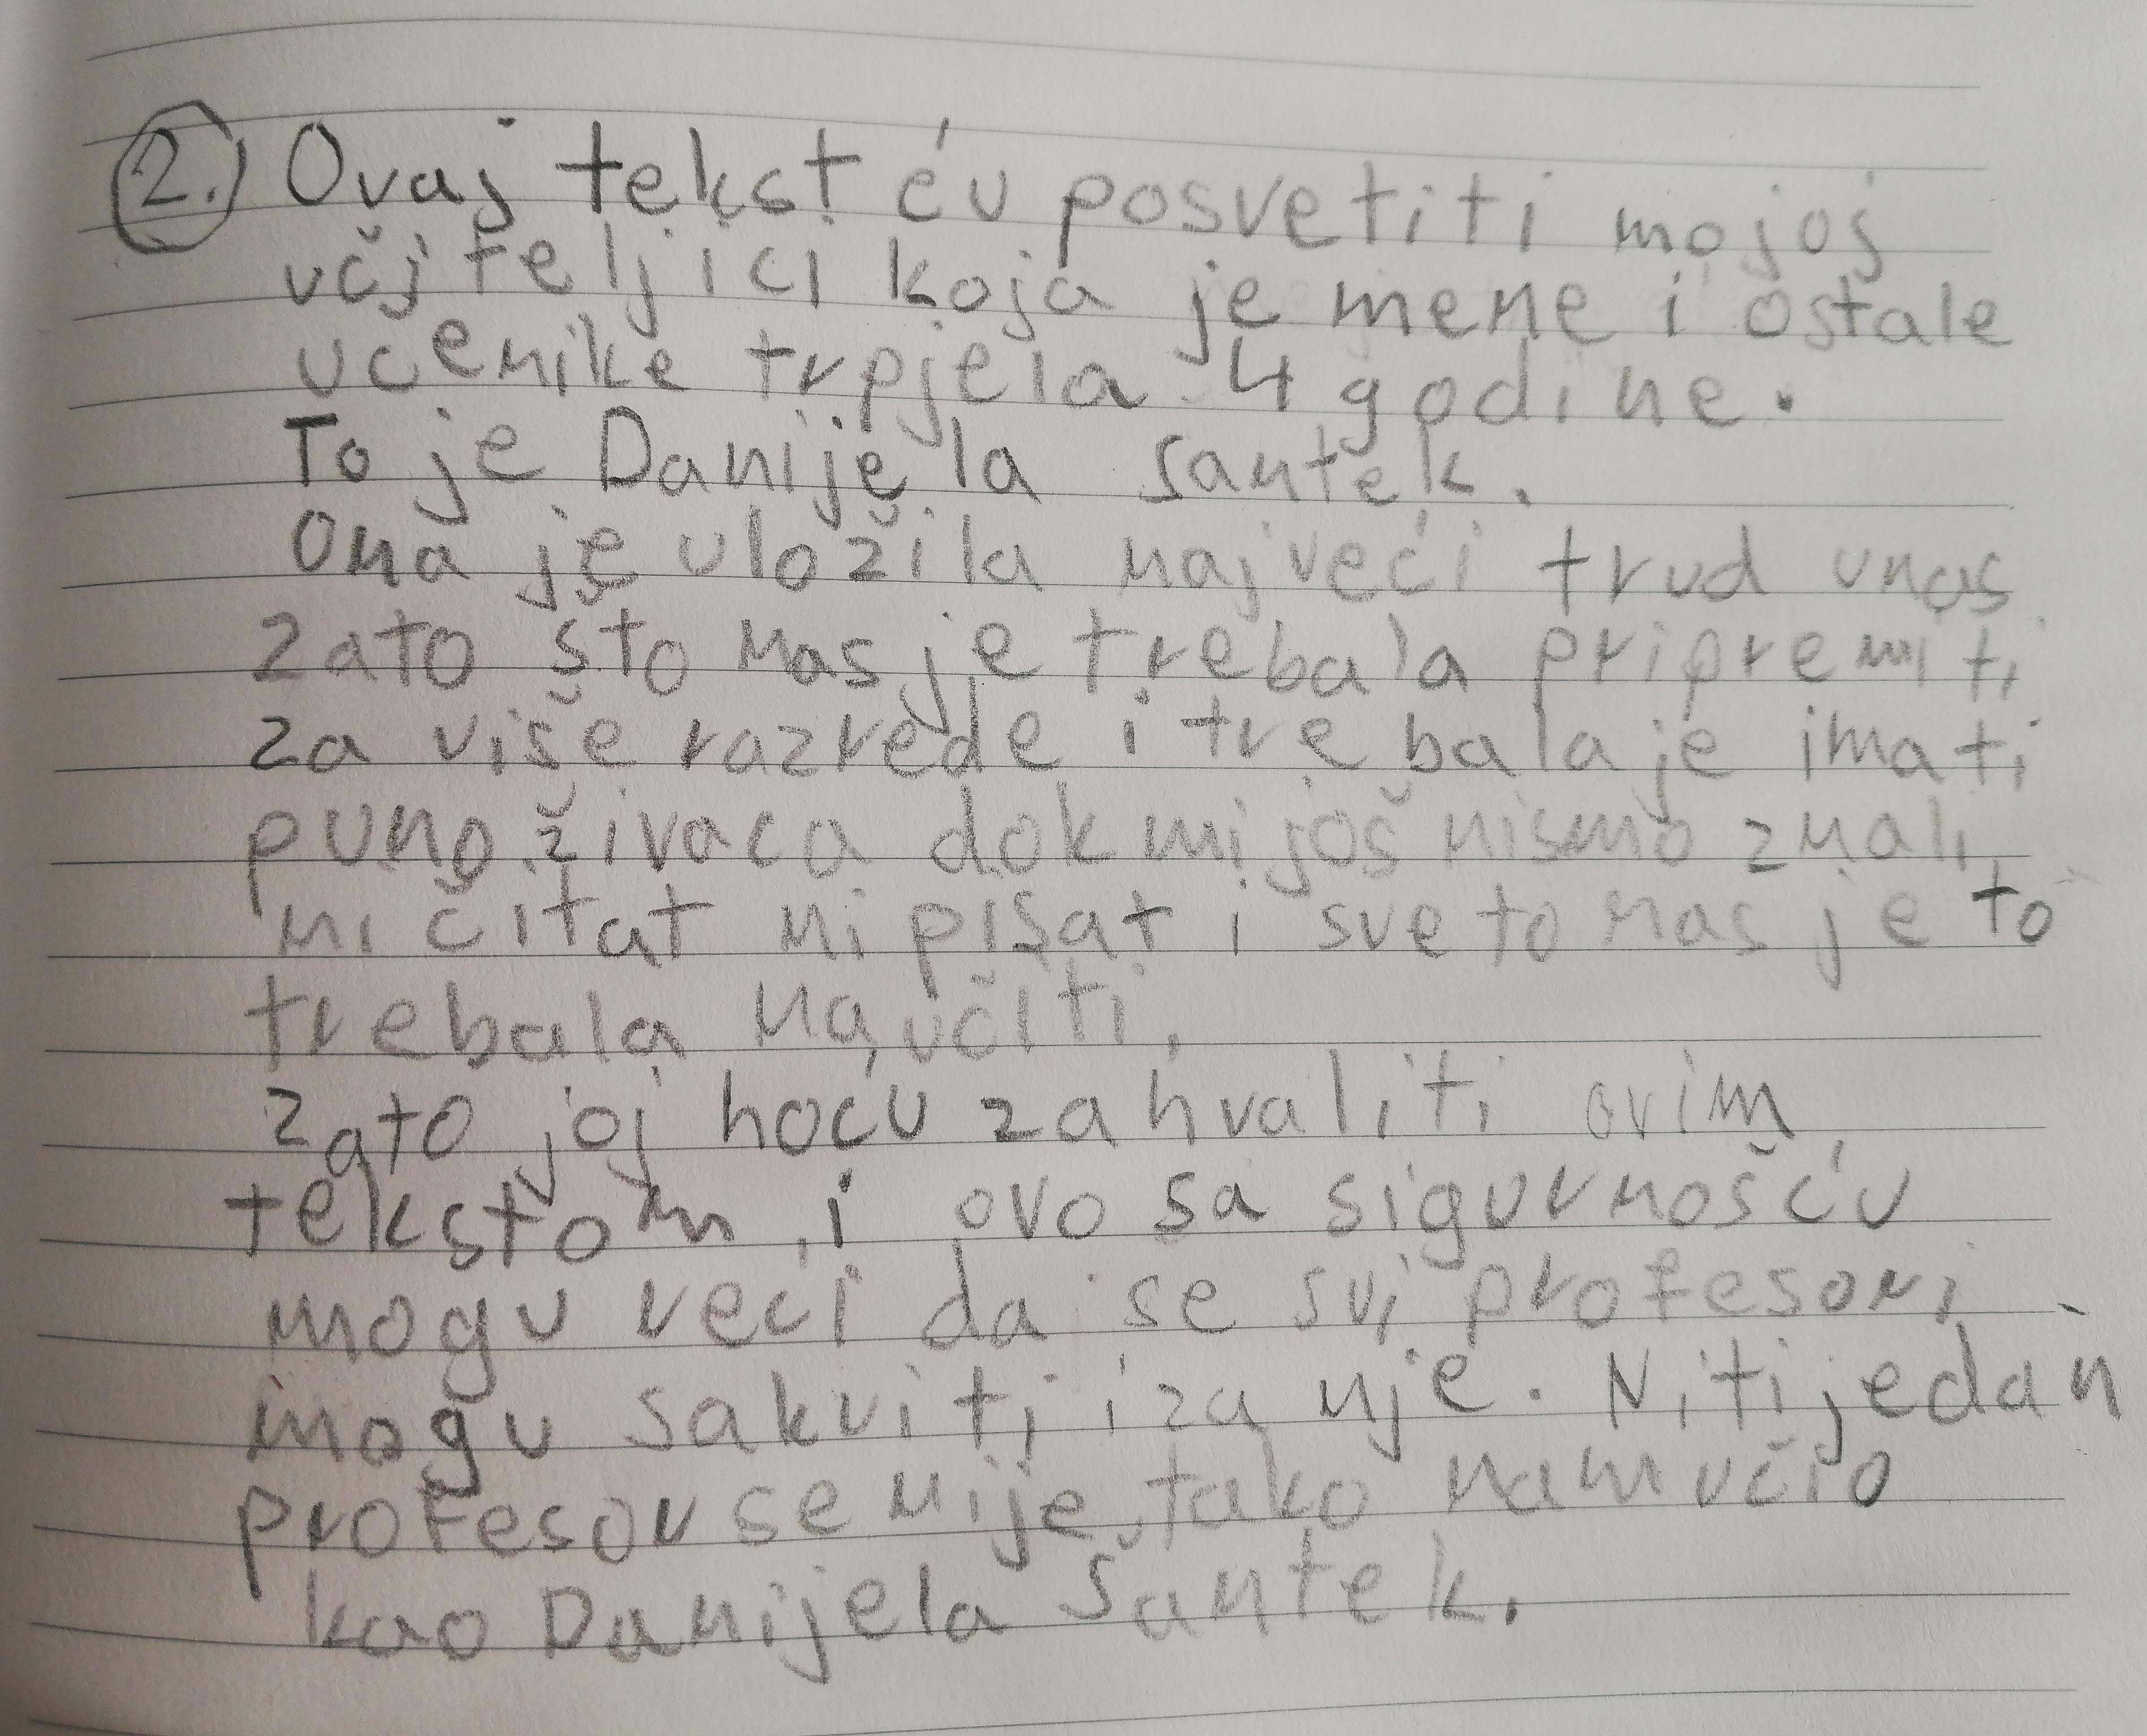 2. Ovaj tekst ću posvetiti mojoj
učiteljici koja je mene i ostale
učenike trpjela 4 godine.
To je Danijela santek.
Ona je uložila najveći trud unas
zato što nas je trebala pripremiti
za više razrede i trebala je imati
puno živaca dok mi još nismo znali
ni čitat ni pisat i sve to nas je to
trebala naučiti.
zato joj hoću zahvaliti ovim
tekstom, i ovo sa sigurnošću
mogu reći da se svi profesori
mogu sakriti iza nje. Niti jedan
profesor se nije tako namučio
kao Danijela Šantek.